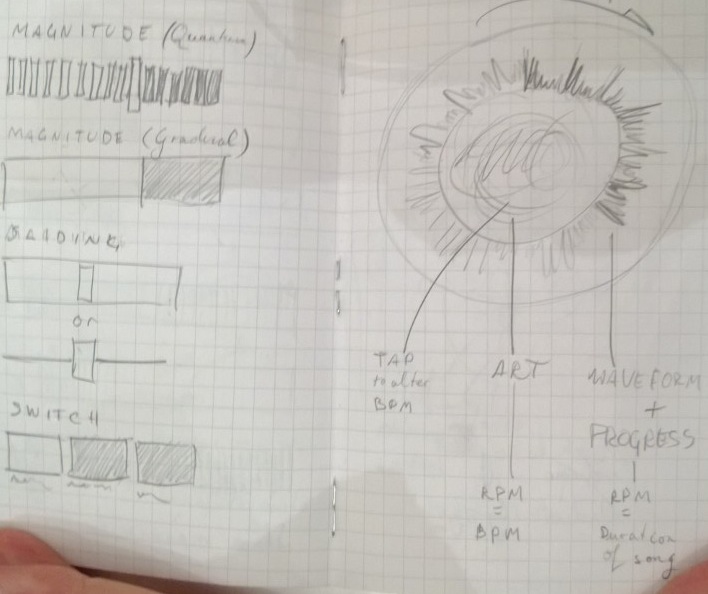 MAGNITUDE (Quantum)
MAGNITUDE (Gradual)
or
SWITCH
TAP
to alter
BPM
ART
RPM
=
BPM
WAVEFORM
+
PROGRESS
RPM
=
Duration
of song